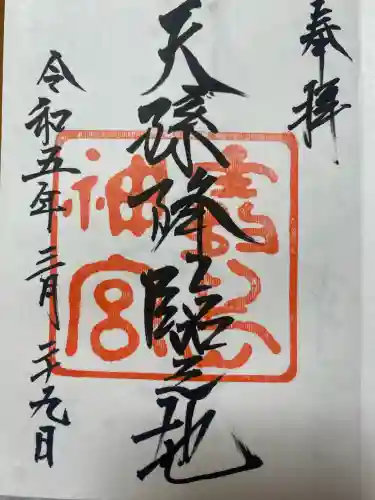 奉拝
天孫降臨之地
令和五年三月二十九日
神宮